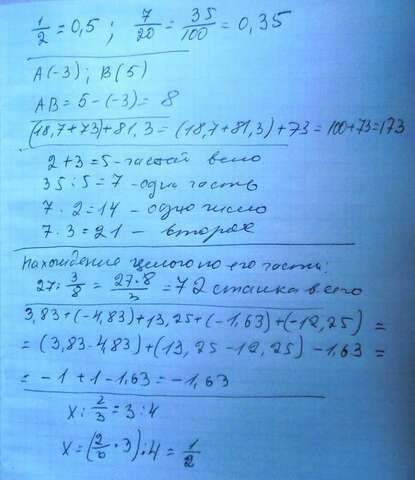 1/2 = 0,5 ; 7/20 = 35/100 = 0,35
A(-3) ; B(5)
AB = 5 - (-3) = 8
(18,7+73)+81,3 = (18,7+81,3)+73 = 100+73=173
2+3=5 - частей всего
35:5=7 - одна часть
7·2=14 - одно число
7·3=21 - второе
Нахождение целого по его части:
27: 3/8 = 27·8/3 = 72 станка всего
3,83+(-4,83)+13,25+(-1,63)+(-12,25) =
= (3,83-4,83)+(13,25-12,25)-1,63 =
= -1+1-1,63 = -1,63
x : 2/3 = 3:4
x = (2/3 · 3):4 = 1/2